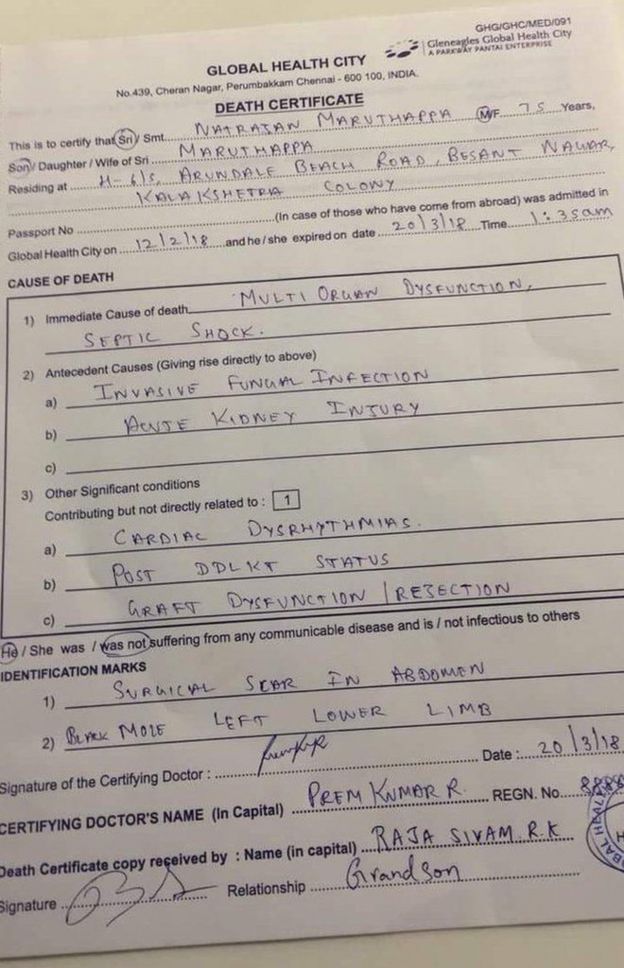 GHG/GHC/MED/091
Gleneagles Global Health City
A PARKWAY PANTAI ENTERPRISE
GLOBAL HEALTH CITY
No.439, Cheran Nagar, Perumbakkam Chennai - 600 100, INDIA.
DEATH CERTIFICATE
This is to certify that Sri / Smt. NATRAJAN MARUTHAPPA M/F. 75 Years,
Son / Daughter / Wife of Sri MARUTHAPPA
Residing at H-6/5, ARUNDALE BEACH ROAD, BESANT NAGAR,
KALAKSHETRA COLONY
Passport No (In case of those who have come from abroad) was admitted in
Global Health City on 12/2/18 and he / she expired on date 20/3/18 Time. 1:35am
CAUSE OF DEATH
1) Immediate Cause of death MULTI ORGAN DYSFUNCTION,
SEPTIC SHOCK.
2) Antecedent Causes (Giving rise directly to above)
a) INVASIVE FUNGAL INFECTION
b) ACUTE KIDNEY INJURY
c)
3) Other Significant conditions
Contributing but not directly related to : 1
a) CARDIAC DYSRHYTHMIAS.
b) POST DDLKT STATUS
c) GRAFT DYSFUNCTION / REJECTION
He / She was / was not suffering from any communicable disease and is / not infectious to others
IDENTIFICATION MARKS
1) SURGICAL SCAR IN ABDOMEN
2) BLACK MOLE LEFT LOWER LIMB
Signature of the Certifying Doctor : Date : 20/3/18
CERTIFYING DOCTOR'S NAME (In Capital) PREM KUMAR R. REGN. No.
Death Certificate copy received by : Name (in capital) RAJA SIVAM. R.K
Signature Relationship Grandson